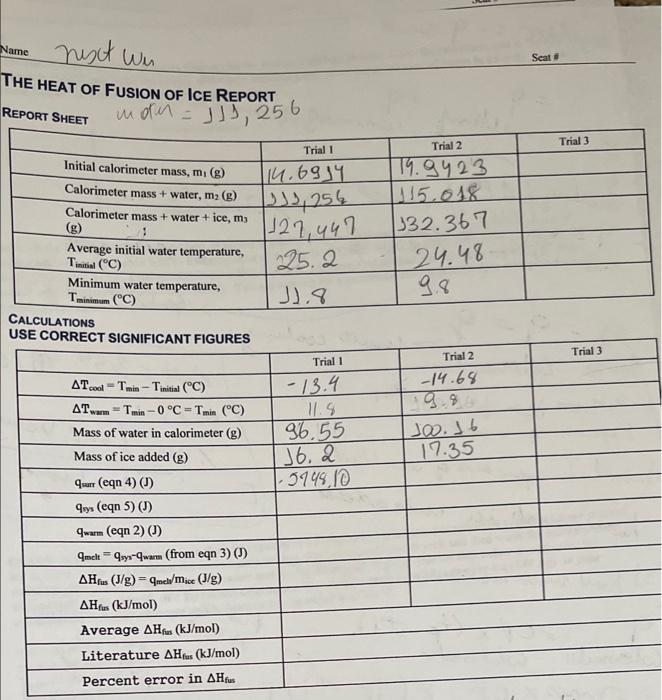 Name
Seat #
THE HEAT OF FUSION OF ICE REPORT
REPORT SHEET = 111,256
Trial 1 Trial 2 Trial 3
Initial calorimeter mass, m₁ (g) 14.6914 14.9423
Calorimeter mass + water, m₂ (g) 111,256 115.018
Calorimeter mass + water + ice, m₃ (g) 127,447 132.367
Average initial water temperature, Tinitial (°C) 25.2 24.48
Minimum water temperature, Tminimum (°C) 11.8 9.8
CALCULATIONS
USE CORRECT SIGNIFICANT FIGURES
Trial 1 Trial 2 Trial 3
ΔTcool = Tmin – Tinitial (°C) -13.4 -14.68
ΔTwarm = Tmin – 0 °C = Tmin (°C) 11.8 9.8
Mass of water in calorimeter (g) 96.55 100.16
Mass of ice added (g) 16.2 17.35
qsurr (eqn 4) (J)
qsys (eqn 5) (J)
qwarm (eqn 2) (J)
qmelt = qsys-qwarm (from eqn 3) (J)
ΔHfus (J/g) = qmelt/mice (J/g)
ΔHfus (kJ/mol)
Average ΔHfus (kJ/mol)
Literature ΔHfus (kJ/mol)
Percent error in ΔHfus